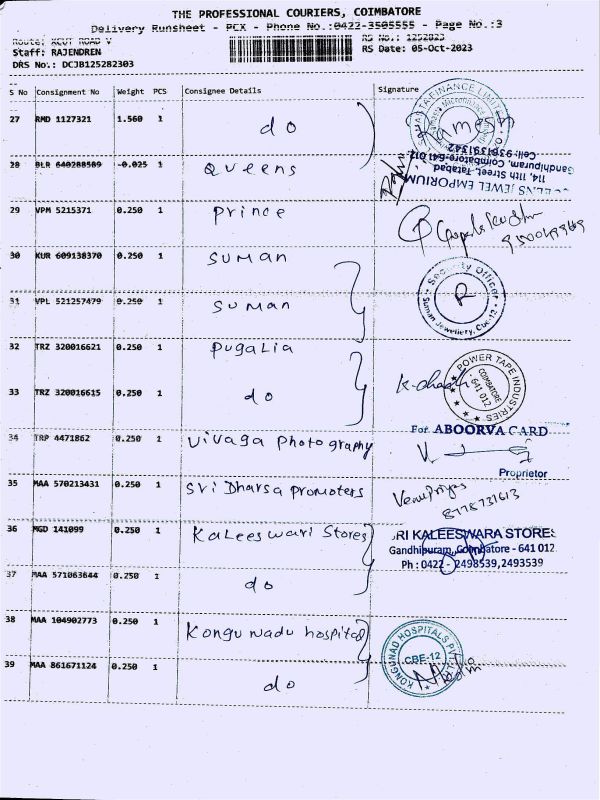 THE PROFESSIONAL COURIERS, COIMBATORE
Delivery Runsheet - PCX - Phone No.:0422-3505555 - Page No.:3
Route: XCUT ROAD V
RS No.: 1252823
Staff: RAJENDREN
RS Date: 05-Oct-2023
DRS No.: DCJB125282303
S No Consignment No Weight PCS Consignee Details Signature
27 RMD 1127321 1.560 1 do
SAMASTA FINANCE LIMITED
28 BLR 640288589 -0.025 1 Queens
JEWEL EMPORIUM
114, 11th Street, Tatabad
Gandhipuram, Coimbatore-641 012
Cell: 9361391342
29 VPM 5215371 0.250 1 Prince
30 KUR 609138370 0.250 1 Suman
31 VPL 521257479 0.250 1 Suman
Security Officer
Suman Jewellery, Cbe-12
32 TRZ 320016621 0.250 1 Pugalia
33 TRZ 320016615 0.250 1 do
POWER TAPE INDUSTRIES
COIMBATORE
641 012
For ABOORVA CARD
34 TRP 4471862 0.250 1 Vivaga Photography
Proprietor
35 MAA 570213431 0.250 1 Sri Dharsa Promoters
8778731613
36 MGD 141099 0.250 1 Kaleeswari Stores
SRI KALEESWARA STORES
Gandhipuram, Coimbatore - 641 012
Ph : 0422 - 2498539, 2493539
37 MAA 571063644 0.250 1 do
38 MAA 104902773 0.250 1 Kongu nadu hospital
KONGUNAD HOSPITALS PVT
CBE-12
39 MAA 861671124 0.250 1 do